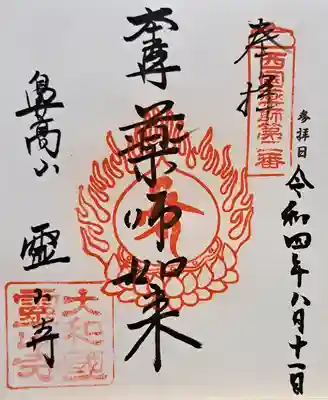 奉拝
西国薬師第二番
参拝日 令和四年八月十一日
本尊 薬師如来
鼻高山 霊山寺
大和國
霊山寺